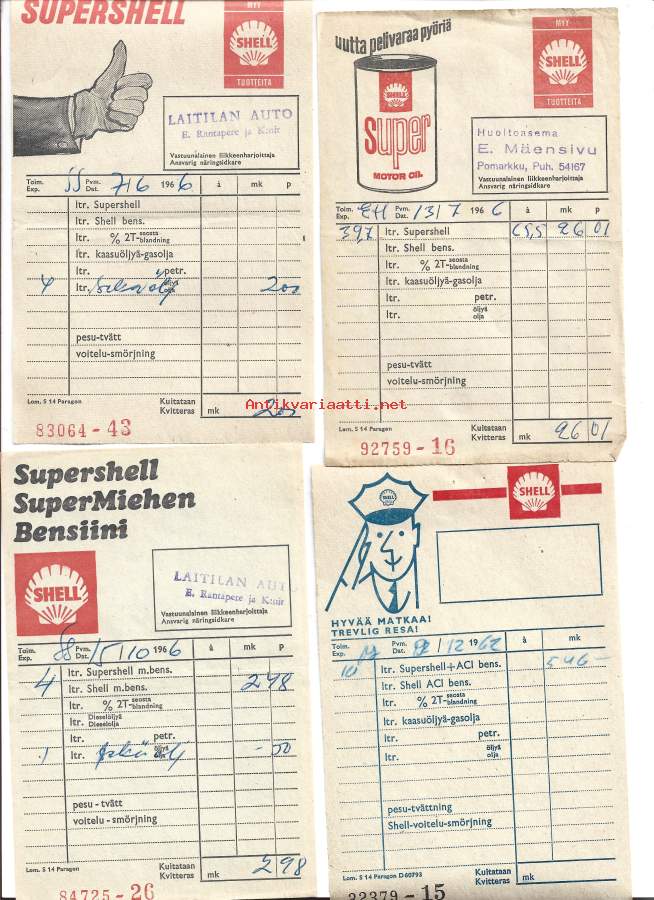 SUPERSHELL
MYY
SHELL
TUOTTEITA
LAITILAN AUTO
E. Rantapere ja K:nit
Vastuunalainen liikkeenharjoittaja
Ansvarig näringsidkare
Toim. Exp. SS Pvm. Dat. 7/6 196 6 à mk p
ltr. Supershell
ltr. Shell bens.
ltr. % 2T-seosta blandning
ltr. kaasuöljyä-gasolja
ltr. petr.
4 ltr. öljyä olja 200
pesu-tvätt
voitelu-smörjning
Lom. S 14 Paragon Kuitataan Kvitteras mk 200
83064 - 43
uutta pelivaraa pyöriä
SHELL
super
MOTOR OIL
MYY
SHELL
TUOTTEITA
Huoltoasema
E. Mäensivu
Pomarkku, Puh. 54167
Vastuunalainen liikkeenharjoittaja
Ansvarig näringsidkare
Toim. Exp. EH Pvm. Dat. 13/7 196 6 à mk p
39,7 ltr. Supershell 65,5 26 01
ltr. Shell bens.
ltr. % 2T-seosta blandning
ltr. kaasuöljyä-gasolja
ltr. petr.
ltr. öljyä olja
pesu-tvätt
voitelu-smörjning
Lom. S 14 Paragon Kuitataan Kvitteras mk 26 01
92759 - 16
Antikvariaatti.net
Supershell
SuperMiehen
Bensiini
SHELL
LAITILAN AUTO
E. Rantapere ja K:nit
Vastuunalainen liikkeenharjoittaja
Ansvarig näringsidkare
Toim. Exp. Pvm. Dat. /5/10 196 6 à mk p
4 ltr. Supershell m.bens.
ltr. Shell m.bens. 2 48
ltr. % 2T-seosta blandning
ltr. Dieselöljyä Dieselolja
ltr. petr.
1 ltr. öljyä olja - 50
pesu - tvätt
voitelu - smörjning
Lom. S 14 Paragon Kuitataan Kvitteras mk 2 98
84725 - 26
SHELL
SHELL
HYVÄÄ MATKAA!
TREVLIG RESA!
Toim. Exp. Pvm. Dat. /12 1962 à mk
10 ltr. Supershell+ACI bens. 546 -
ltr. Shell ACI bens.
ltr. % 2T-seosta blandning
ltr. kaasuöljyä-gasolja
ltr. petr.
ltr. öljyä olja
pesu-tvättning
Shell-voitelu-smörjning
Lom. S 14 Paragon D 60793 Kuitataan Kvitteras mk
22379 - 15